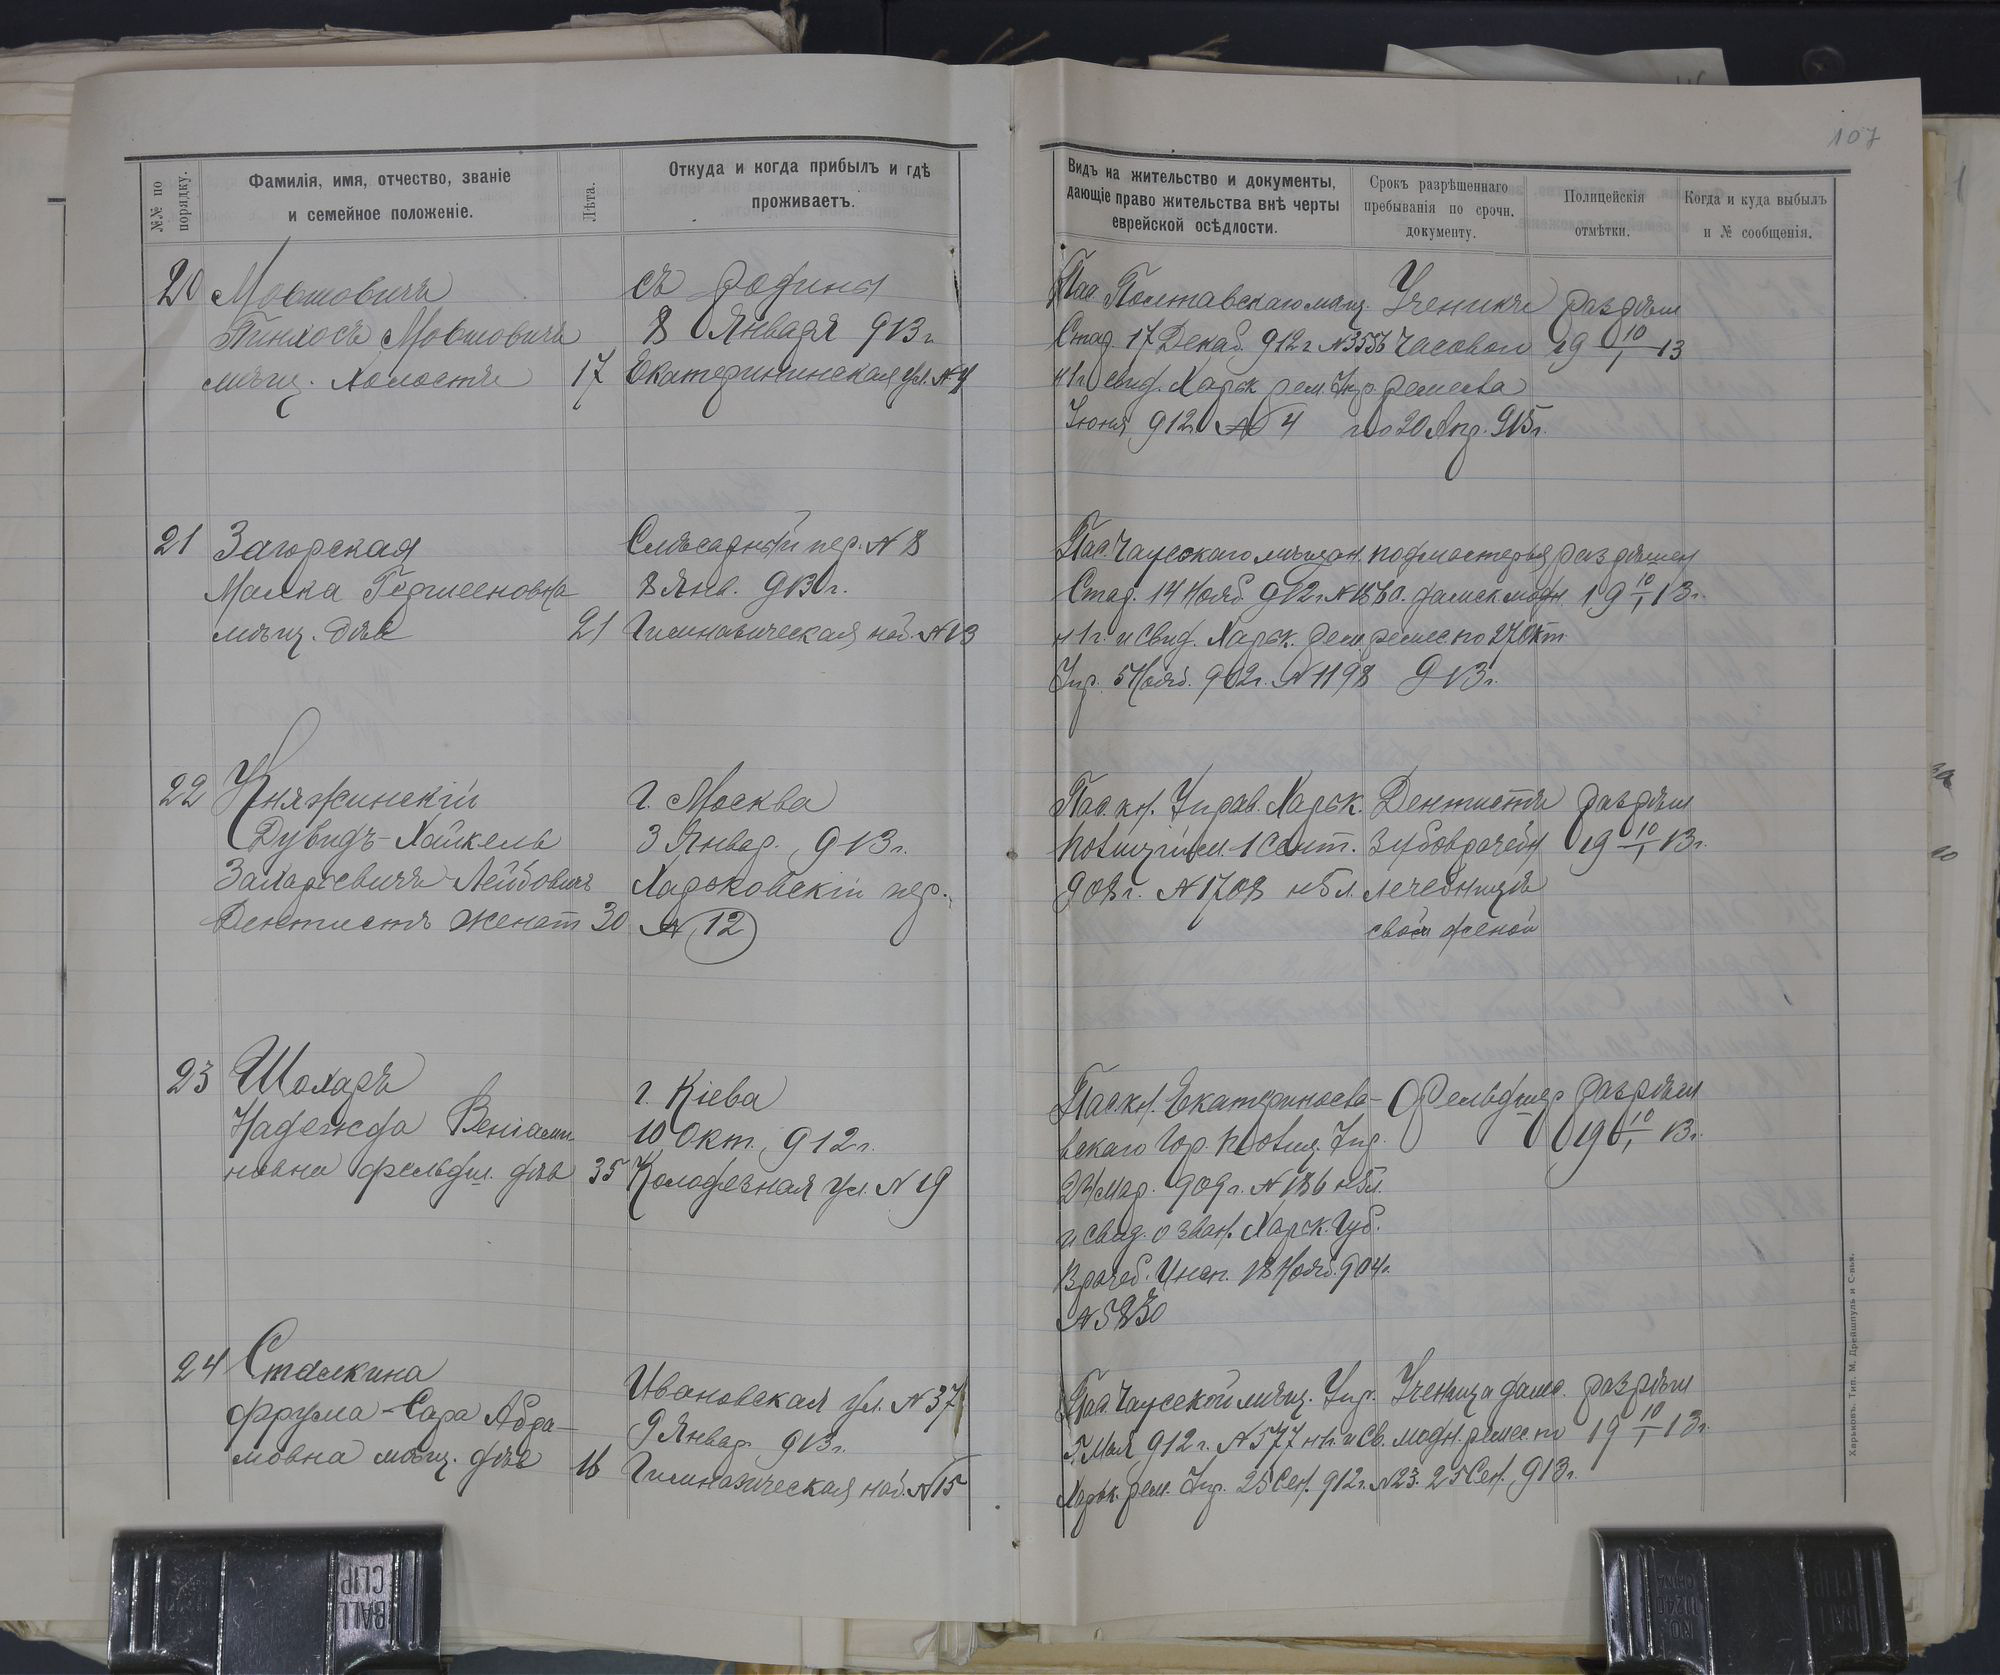 107
№№ по порядку.
Фамилія, имя, отчество, званіе
и семейное положеніе.
Лѣта.
Откуда и когда прибылъ и гдѣ
проживаетъ.
Видъ на жительство и документы,
дающіе право жительства внѣ черты
еврейской осѣдлости.
Срокъ разрѣшеннаго
пребыванія по срочн.
документу.
Полицейскія
отмѣтки.
Когда и куда выбылъ
и № сообщенія.
20 Мовшовичъ
Пинхосъ Мовшовичъ
мѣщ. Холостъ 17
съ родины
8 Января 913 г.
Екатерининская ул. №
Пас. Полтавскаго мѣщ.
Стар. 17 Декаб. 912 г. №3556
н 1 г. свид. Харьк рем. Упр.
Іюня 912 № 4
Ученикъ
часового
ремесла
по 20 Апр. 915 г.
разрѣш
19 10/I 13
21 Загорская
Малка Гершеновна
мѣщ. дѣв 21
Слесарный пер. № 8
8 Янв. 913 г.
Гимназическая наб. №13
Пас. Чаусскаго мѣщан.
Стар. 14 Нояб. 912 г. №
н 1 г. и свид. Харьк. рем.
Упр. 5 Нояб. 912 г. № 1198
подмастерья
дамск. модн.
ремес. по 27 Окт.
913 г.
разрѣшен
19 10/I 13 г.
22 Княжинскій
Дувидъ-Хайкель
Захарьевичъ-Лейбовичъ
Дентистъ женат 30
г. Москва
3 Январ. 913 г.
Харьковскій пер.
№ 12
Пас. кн. Управ. Харьк.
Полиціймі. 1 Сент.
908 г. № 1708 н 5 л.
Дентистъ
Зубоврачебн
лечебница
свой женой
разрѣш
19 10/I 13 г.
23 Шохаръ
Надежда Веніами-
новна фельдш. дѣв 35
г. Кіева
10 Окт. 912 г.
Колодезная ул. № 19
Пас. кн. Екатеринсла-
вскаго Гор. Полиц. Упр.
24 Мар. 909 г. № 186 н 5 л.
и свид. о зван. Харьк. Губ.
Врачеб. Инсп. 18 Нояб. 904 г.
№ 5830
Фельдшер
разрѣш
19 10/I 13 г.
24 Сталкина
Фрума-Сара Абра-
мовна мѣщ. дѣв 16
Ивановская ул. № 37
9 Январ 913 г.
Гимназическая наб. №15
Пас. Чаусской мѣщ. Упр.
5 Мая 912 г. № 577 н 1 г. и св.
Харьк. рем. Упр. 25 Сен. 912 г. №23.
Ученица дамс.
модн. ремес. по
25 Сен. 913 г.
разрѣш
19 10/I 13 г.
Харьковъ. Тип. М. Дрейшпуль и С-вья.
BALL
CLIP
BALL
CLIP